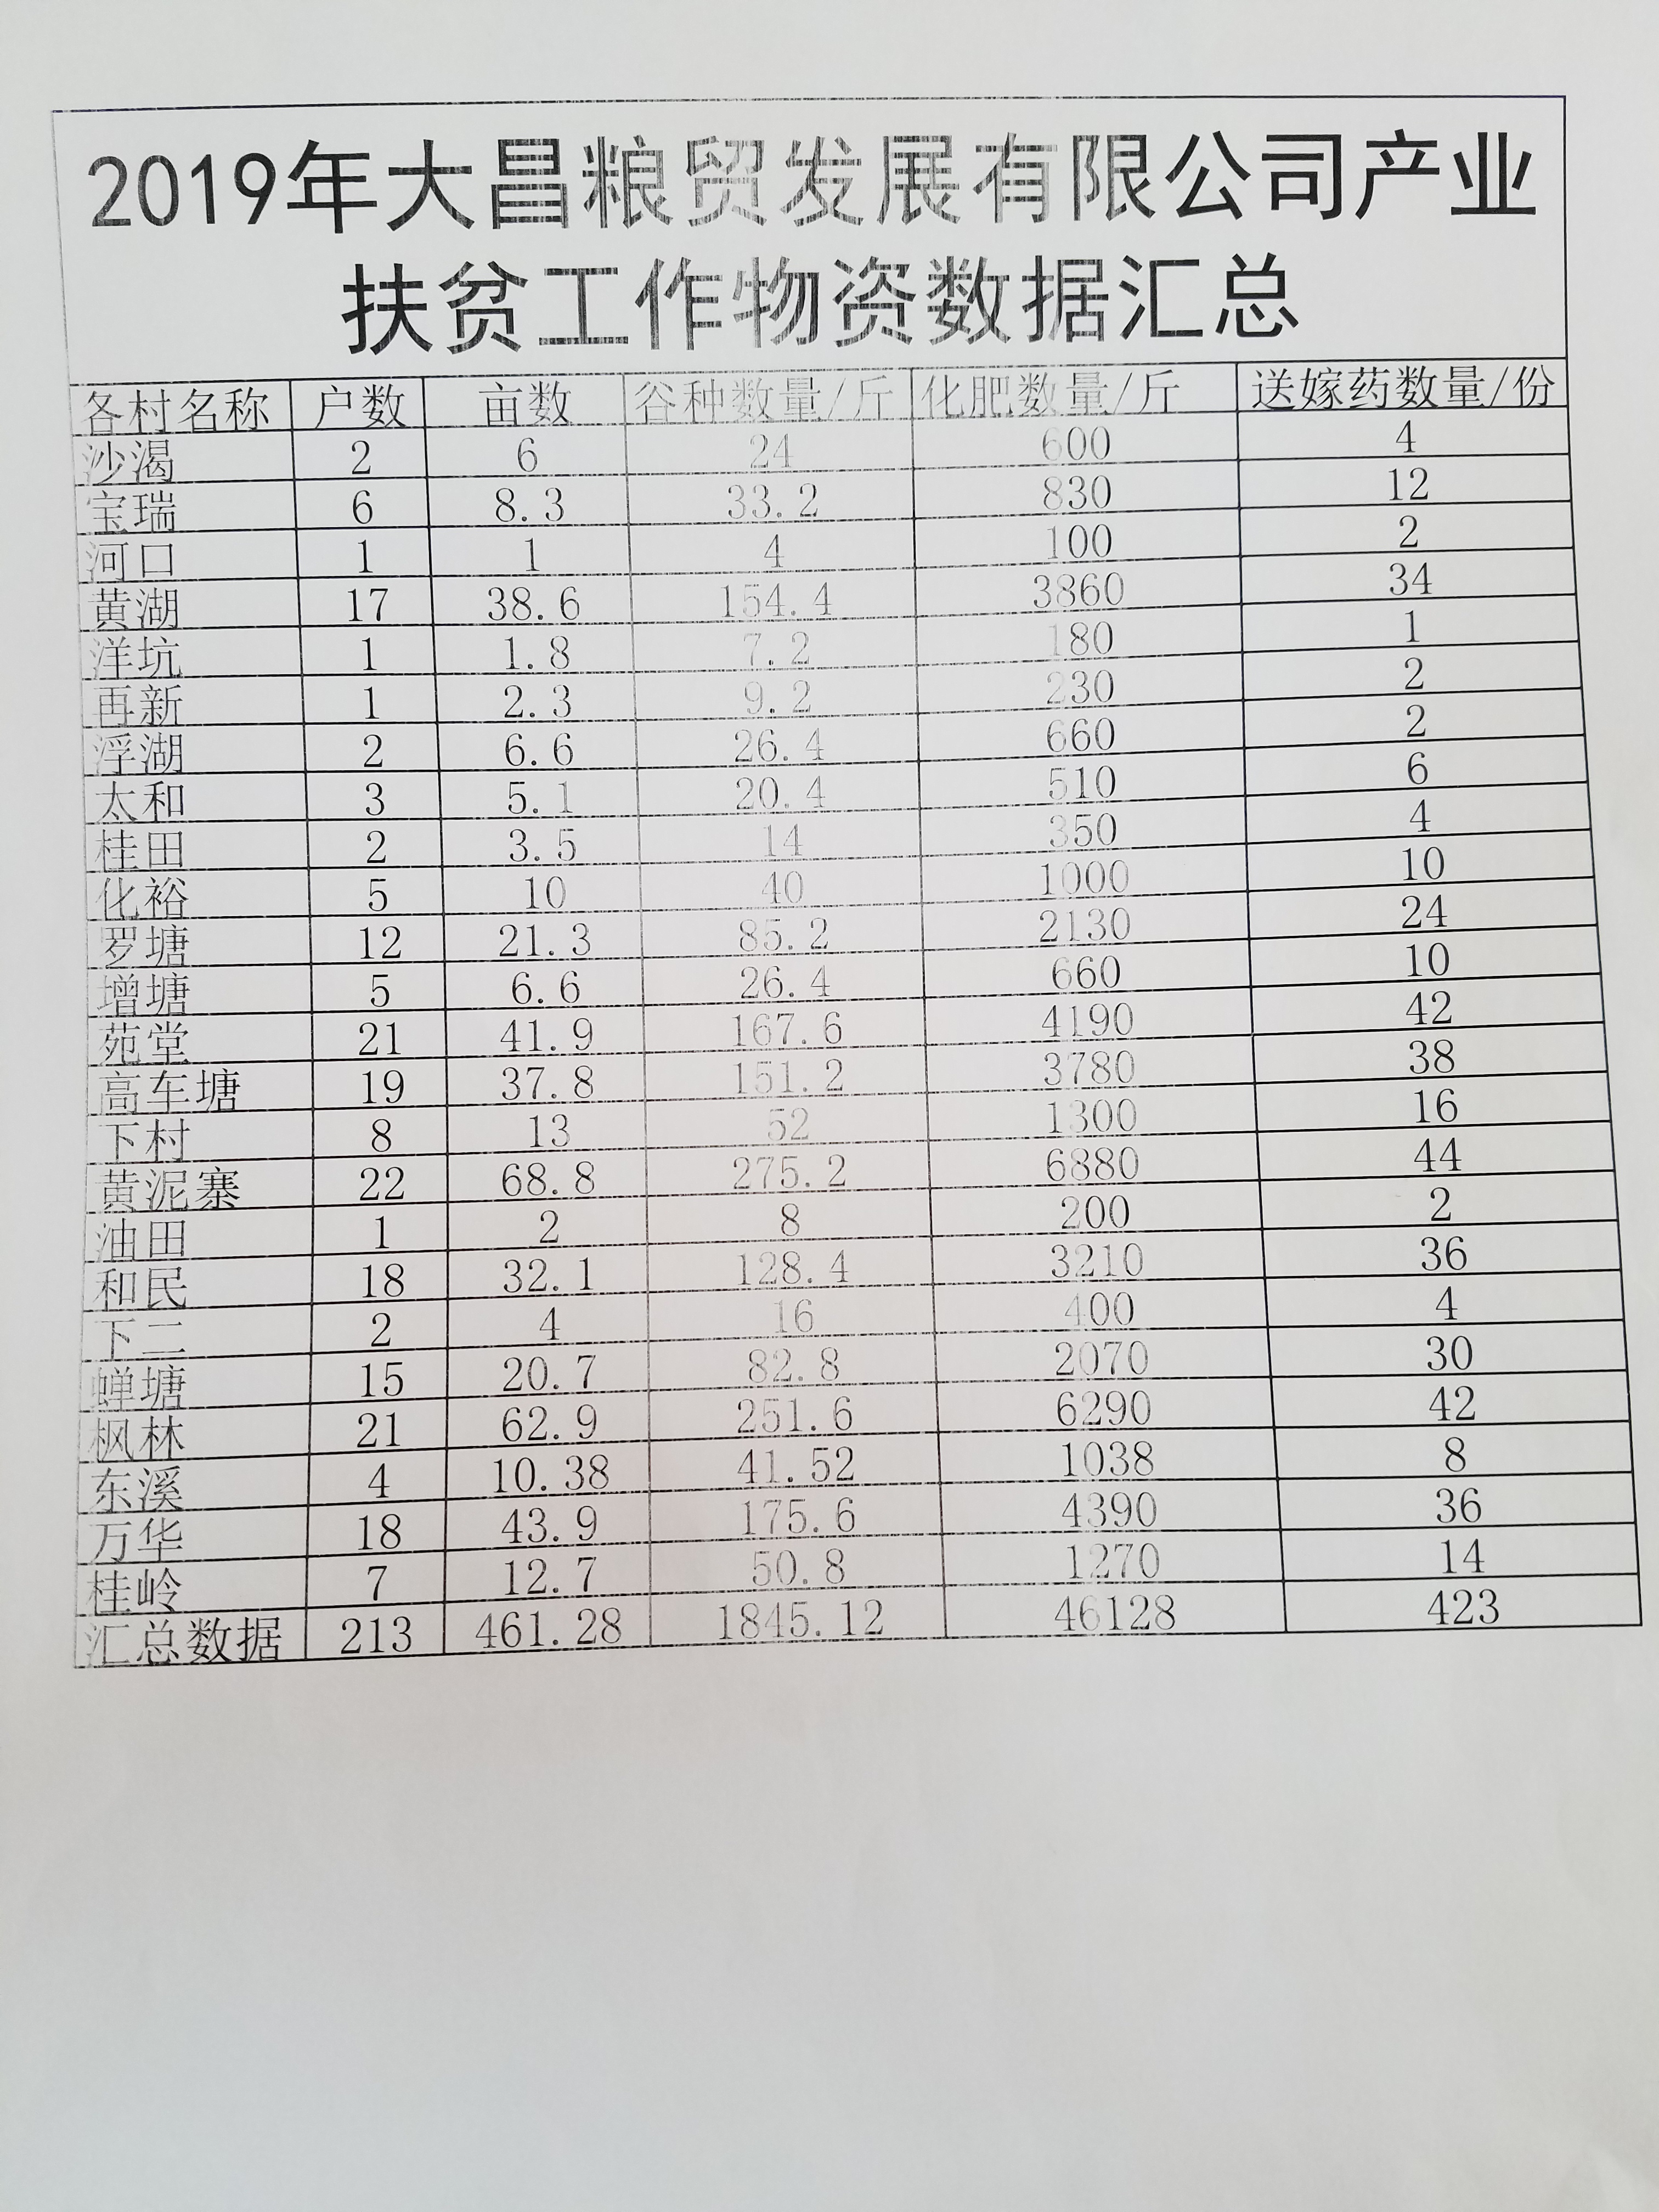 2019年大昌粮贸发展有限公司产业
扶贫工作物资数据汇总
各村名称 户数 亩数 谷种数量/斤 化肥数量/斤 送嫁药数量/份
沙渴 2 6 24 600 4
宝瑞 6 8.3 33.2 830 12
河口 1 1 4 100 2
黄湖 17 38.6 154.4 3860 34
洋坑 1 1.8 7.2 180 1
再新 1 2.3 9.2 230 2
浮湖 2 6.6 26.4 660 2
太和 3 5.1 20.4 510 6
桂田 2 3.5 14 350 4
化裕 5 10 40 1000 10
罗塘 12 21.3 85.2 2130 24
增塘 5 6.6 26.4 660 10
苑堂 21 41.9 167.6 4190 42
高车塘 19 37.8 151.2 3780 38
下村 8 13 52 1300 16
黄泥寨 22 68.8 275.2 6880 44
油田 1 2 8 200 2
和民 18 32.1 128.4 3210 36
下二 2 4 16 400 4
蝉塘 15 20.7 82.8 2070 30
枫林 21 62.9 251.6 6290 42
东溪 4 10.38 41.52 1038 8
万华 18 43.9 175.6 4390 36
桂岭 7 12.7 50.8 1270 14
汇总数据 213 461.28 1845.12 46128 423